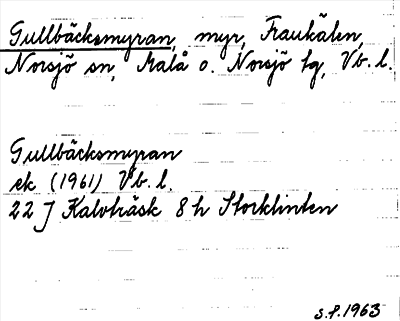 Gullbäcksmyran, myr, Fraukälen,
Norsjö sn, Malå o. Norsjö tg, Vb. l.
Gullbäcksmyran
ek (1961) Vb. l.
22 J Kalvträsk 8 h Storklinten
s.f. 1963